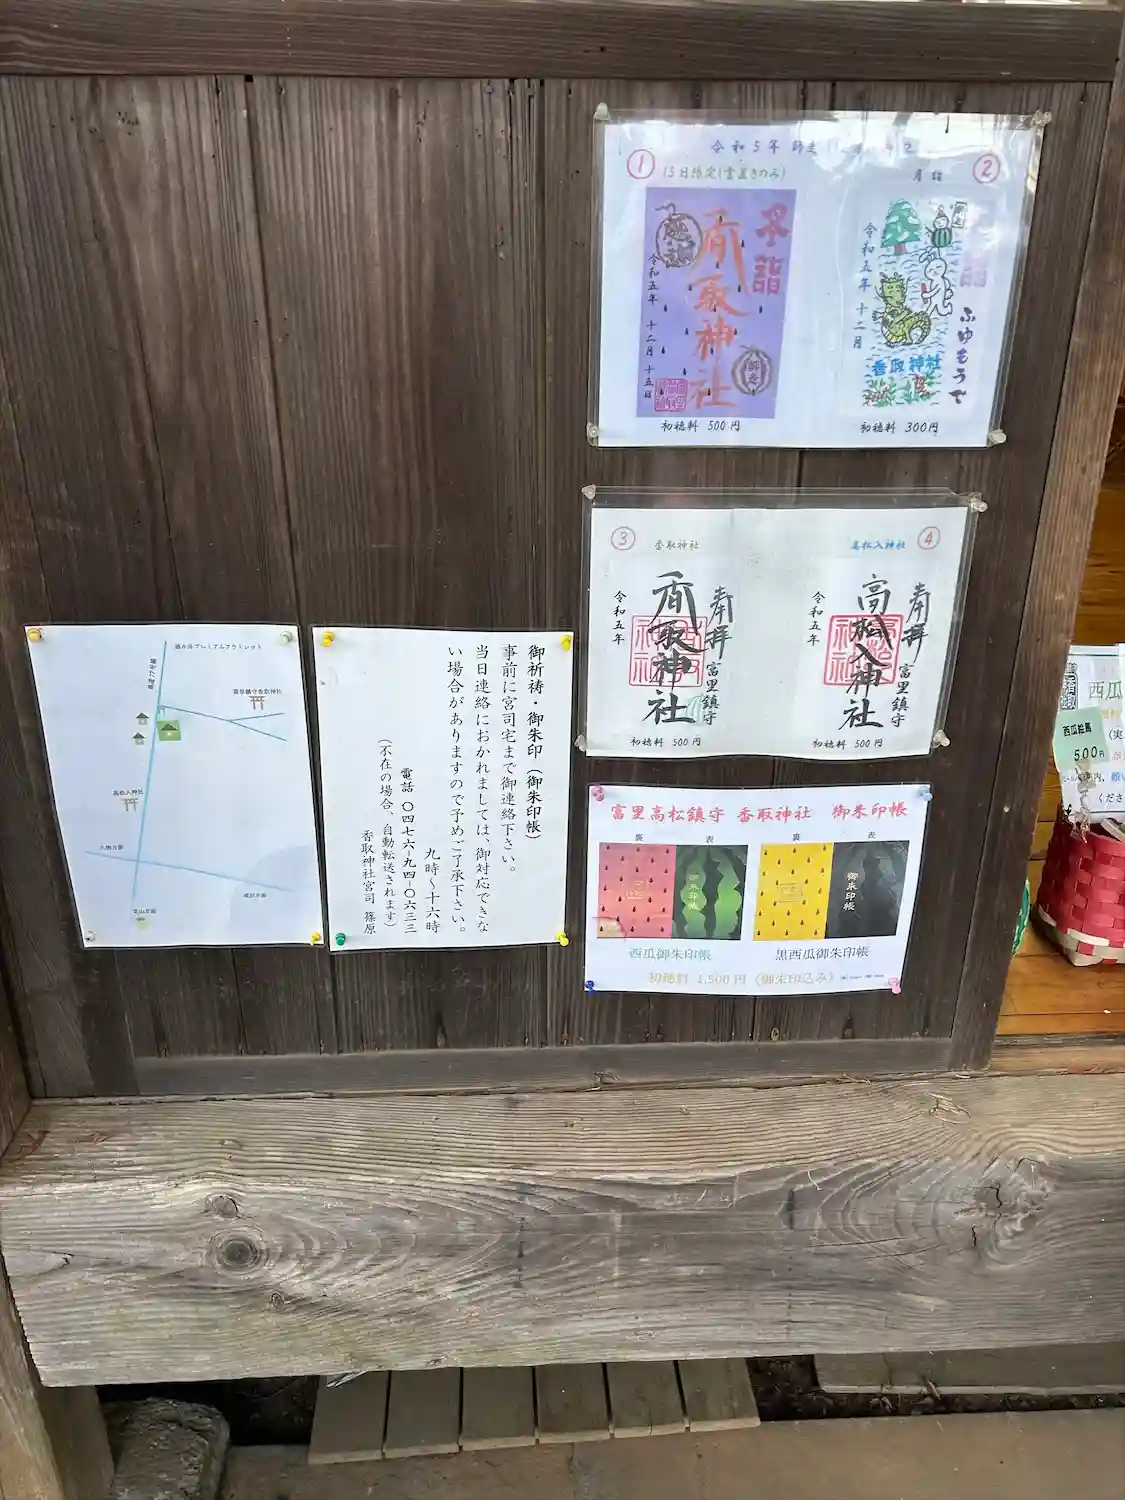 令和5年 師走
①
15日限定(書置きのみ)
早詣
香取神社
令和五年 十二月 十五日
師走
初穂料 500円
②
月詣
令和五年 十二月
ふゆもうで
香取神社
初穂料 300円
③
香取神社
奉拝 富里鎮守
香取神社
令和五年
初穂料 500円
④
高松入神社
奉拝 富里鎮守
高松入神社
令和五年
初穂料 500円
富里高松鎮守 香取神社 御朱印帳
裏 表
裏 表
御朱印帳
御朱印帳
西瓜御朱印帳
黒西瓜御朱印帳
初穂料 1,500円(御朱印込み)
御祈祷・御朱印(御朱印帳)
事前に宮司宅まで御連絡下さい。
当日連絡におかれましては、御対応できな
い場合がありますので予めご了承下さい。
九時~十六時
電話 〇四七六-九四-〇六三三
(不在の場合、自動転送されます)
香取神社宮司 篠原
酒々井プレミアムアウトレット
富里鎮守香取神社
高松入神社
八街方面
成田方面
芝山方面
西瓜
西瓜絵馬
500円
くださ